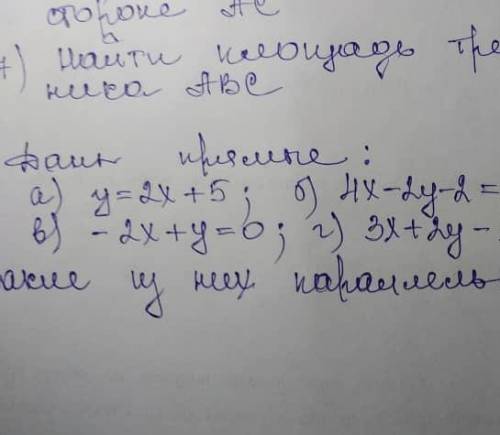 стороне AC
7) Найти площадь тре
ника ABC
Даны прямые:
а) y=2x+5; б) 4x-2y-2=
в) -2x+y=0; г) 3x+2y-
акие из них параллель